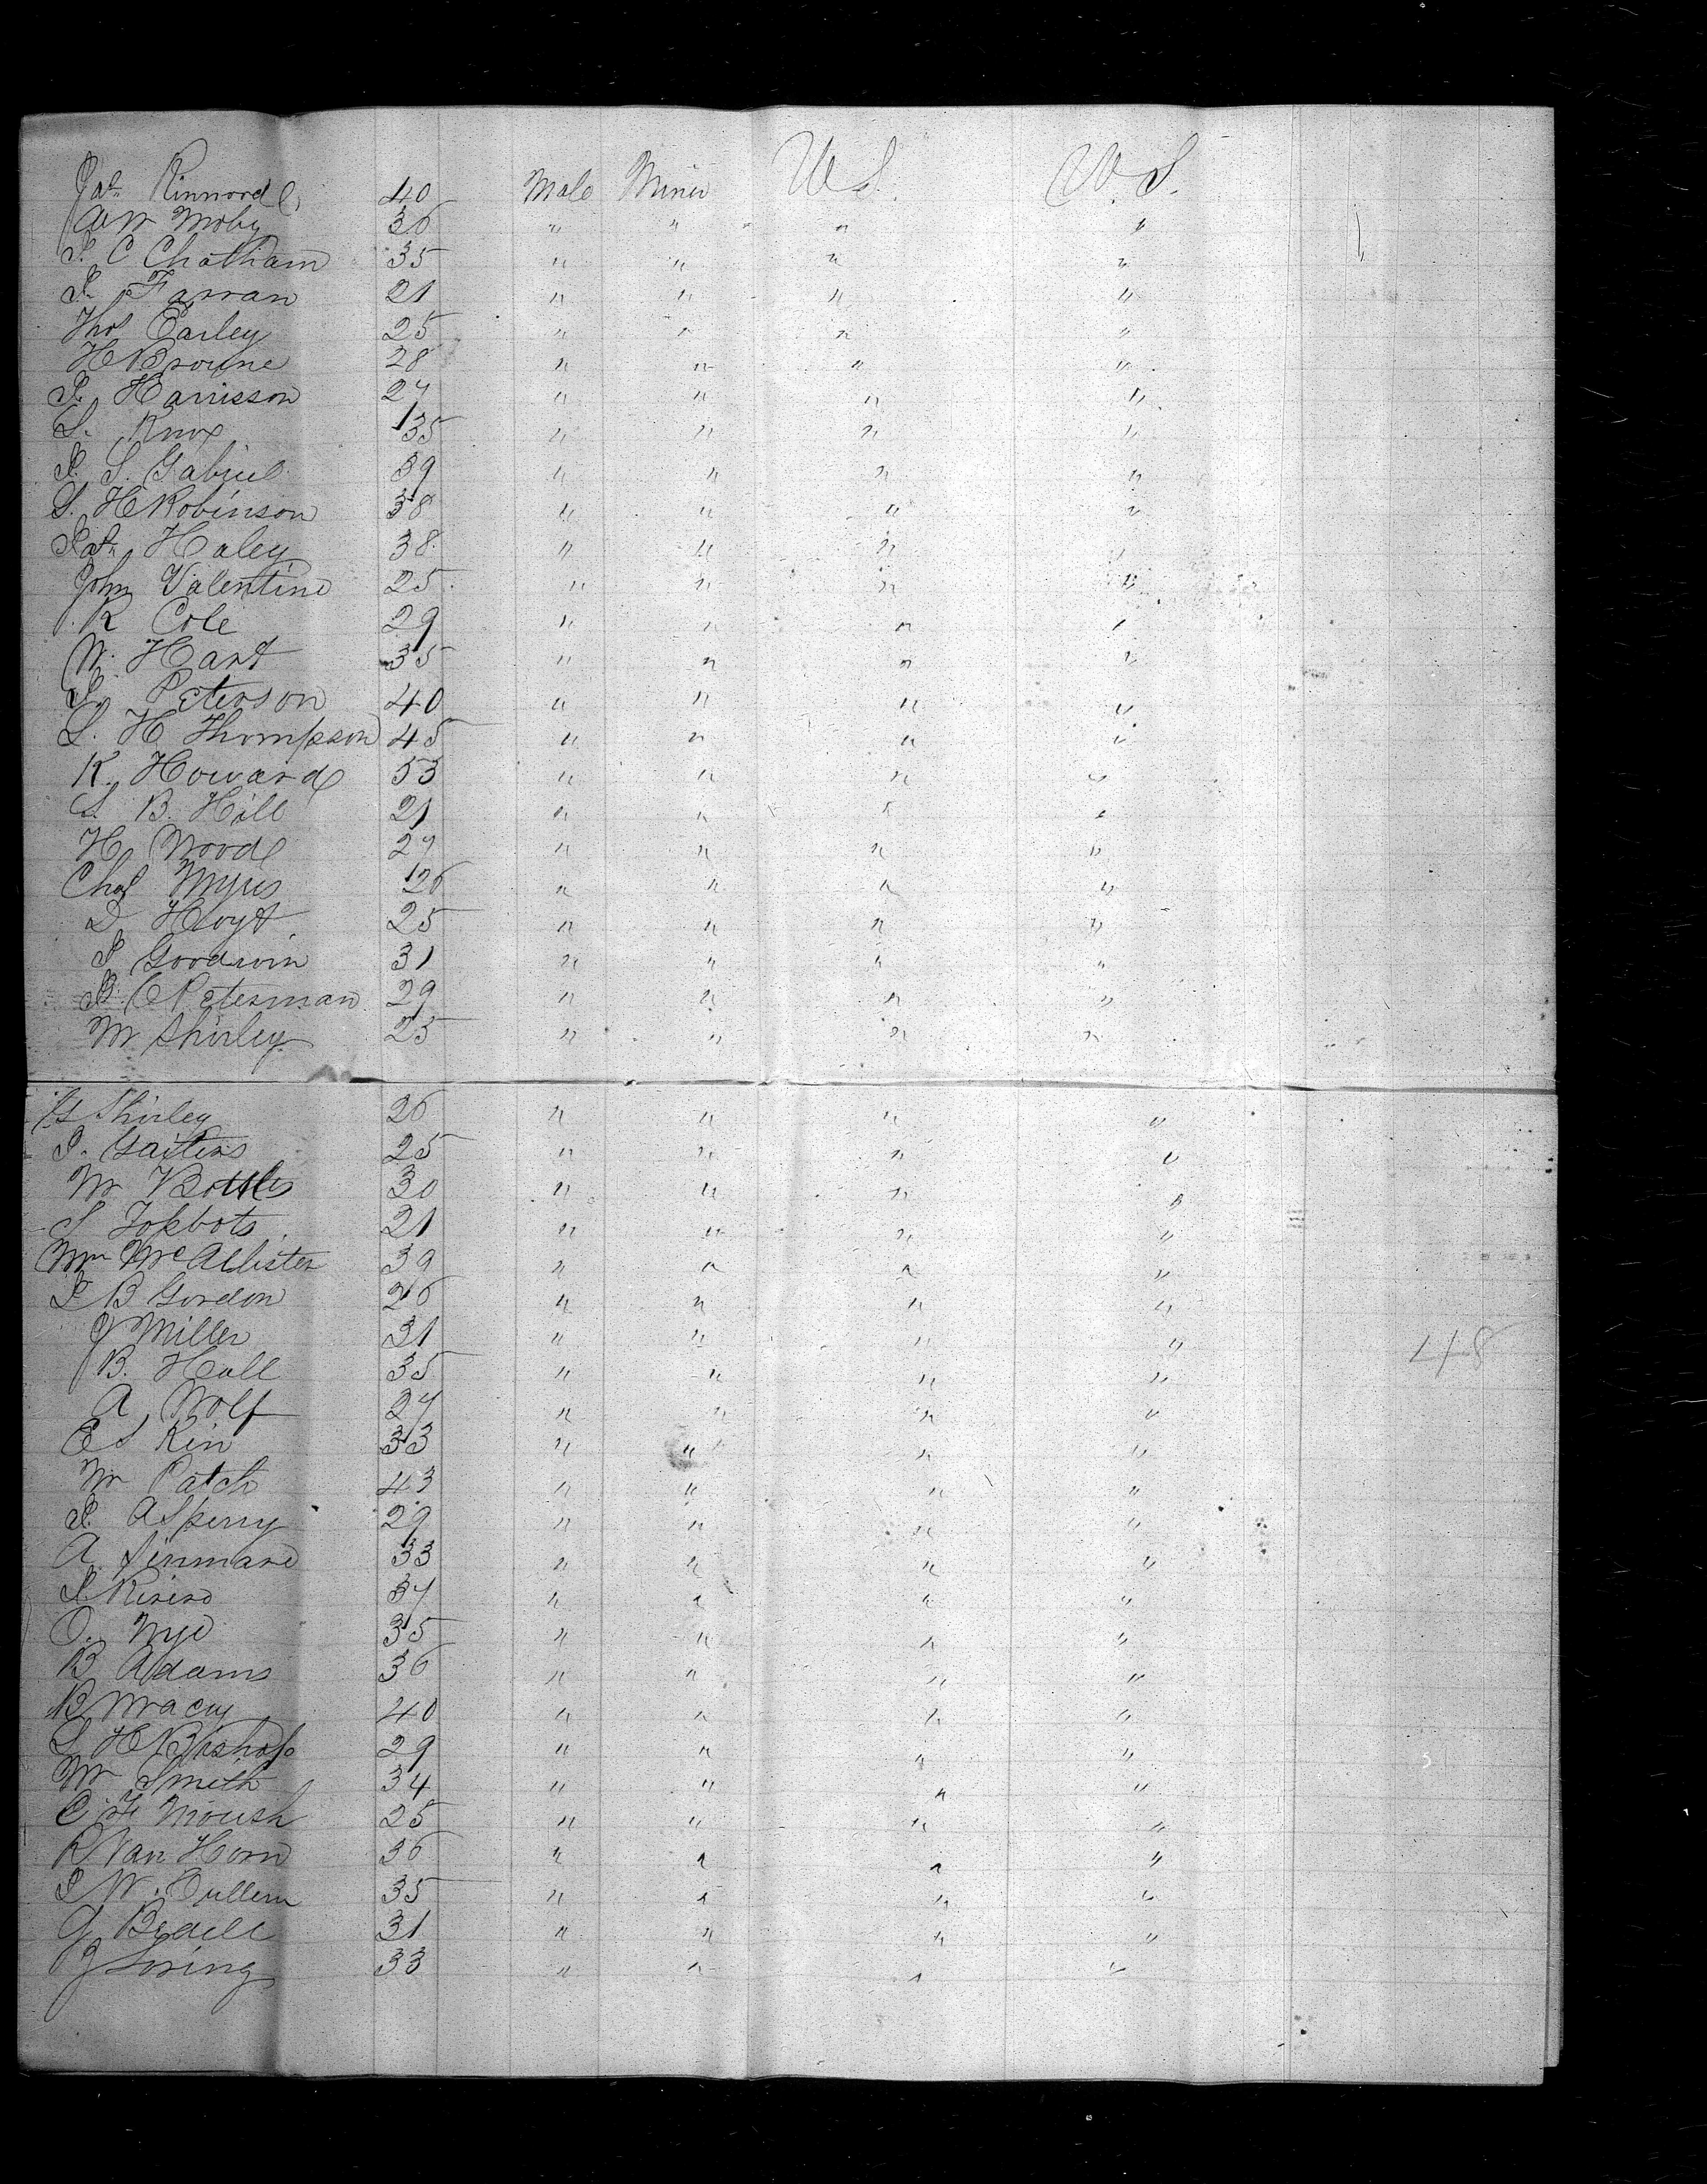 Jas. Kinnord 40 Male Miner U S. U. S.
Wm Moby 36 " " " "
S. C Chatham 35 " " " "
S. Farran 21 " " " "
Thos Earley 25 " " " "
H Broune 28 " " " "
P. Harrisson 27 " " " "
S. Knox 35 " " " "
P. S. Gabriel 39 " " " "
S. H Robinson 38 " " " "
Pat. Haley 38. " " " "
John Valentine 25. " " " "
R Cole 29 " " " "
W. Hart 35 " " " "
P. Peterson 40 " " " "
L. H Thompson 45 " " " "
R. Howard 53 " " " "
S B. Hill 21 " " " "
H Wood 27 " " " "
Chas Myres 26 " " " "
D Hoyt 25 " " " "
P Goodwin 31 " " " "
P. C Peterman 29 " " " "
W Shirley 25 " " " "
Shirley 26 " " " "
P. Gaiters 25 " " " "
W Bottles 30 " " " "
S 21 " " " "
Wm McAllister 39 " " " "
P B Gordon 26 " " " "
J Miller 31 " " " "
B. Hall 35 " " " "
A Wolf 27 " " " "
E S Kin 33 " " " "
W Patch 43 " " " "
P. A Sperry 29 " " " "
A. 33 " " " "
P. 37 " " " "
O. Nye 35 " " " "
B Adams 36 " " " "
B Macy 40 " " " "
L H Bishop 29 " " " "
W Smith 34 " " " "
C. F. Moush 25 " " " "
R. Van Horn 36 " " " "
P W. Cullem 35 " " " "
G Bedell 31 " " " "
J Loring 33 " " " "
48